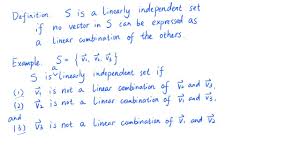 Definition. S is a linearly independent set
if no vector in S can be expressed as
a linear combination of the others
Example. S = { v⃗₁, v⃗₂, v⃗₃ }
S is a linearly independent set if
(1) v⃗₁ is not a linear combination of v⃗₂ and v⃗₃,
(2) v⃗₂ is not a linear combination of v⃗₁ and v⃗₃,
and
(3) v⃗₃ is not a linear combination of v⃗₁ and v⃗₂